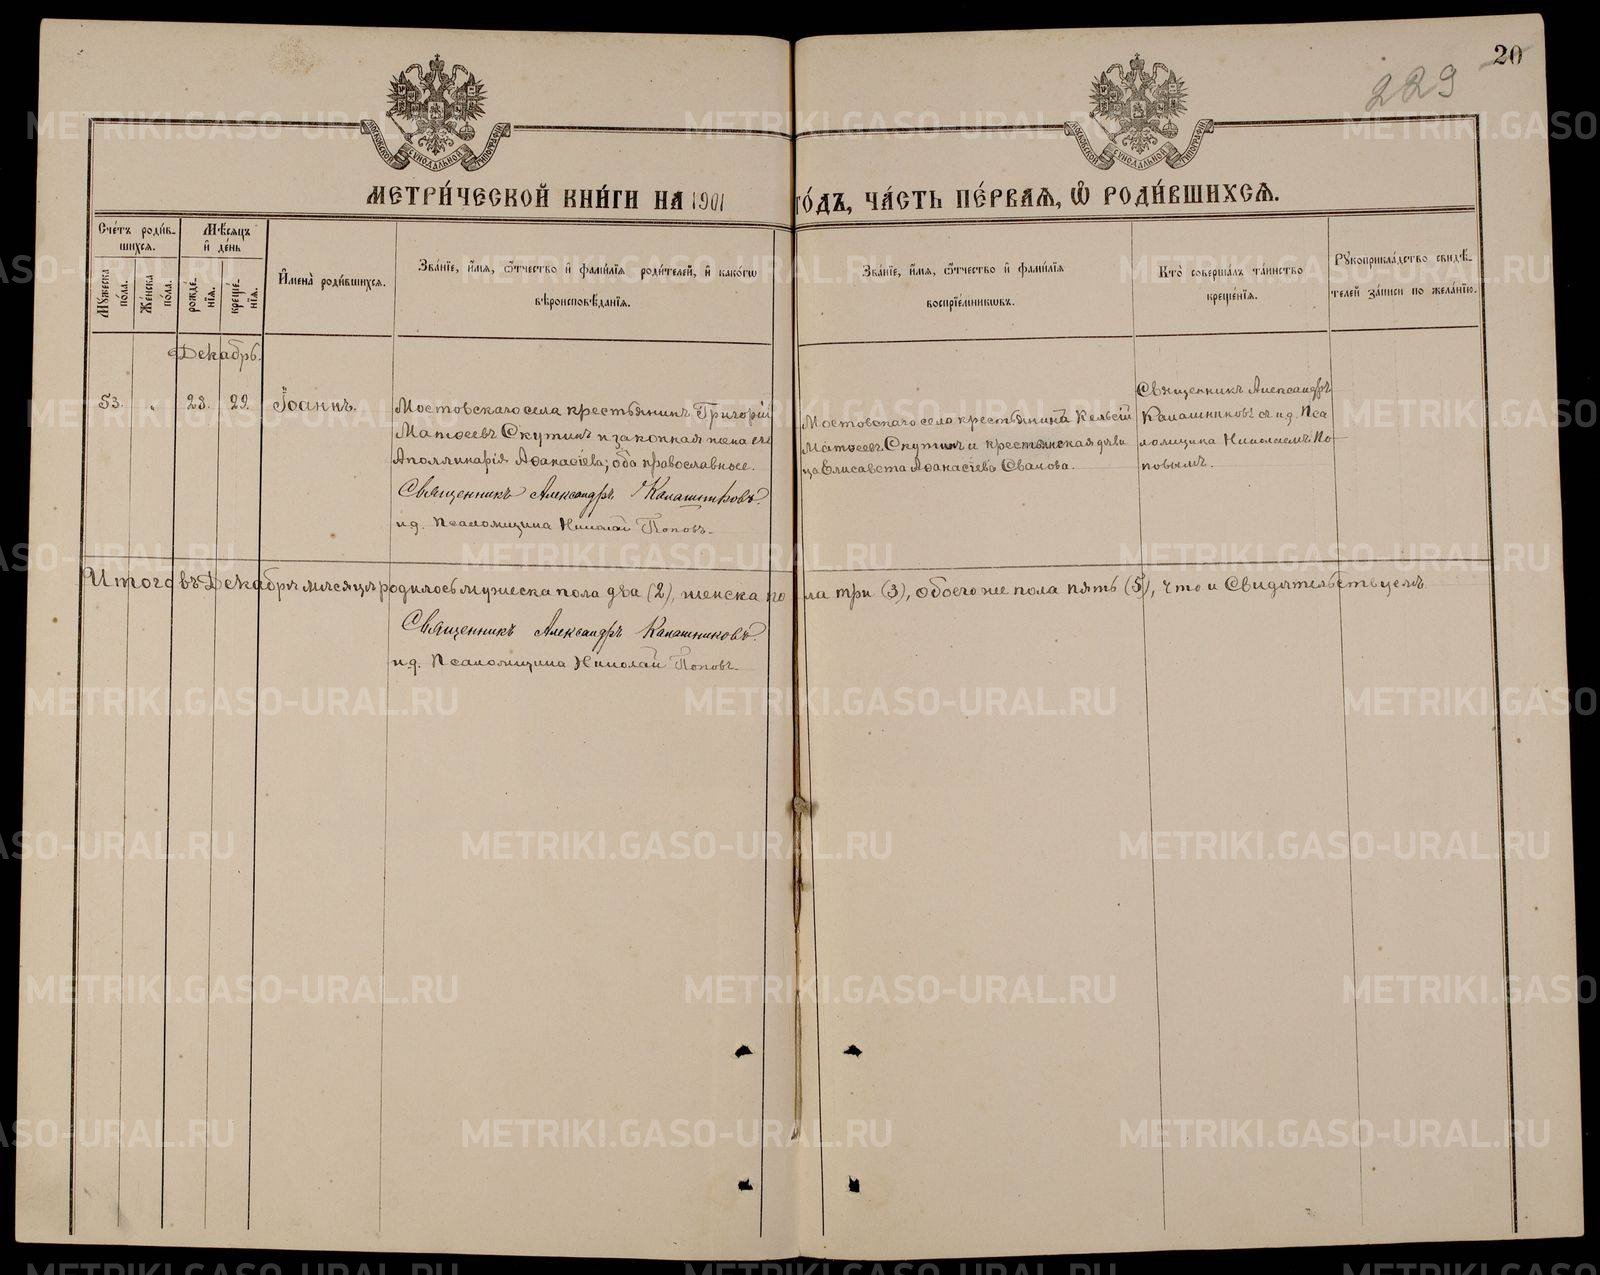 20
229
МОСКОВСКОЙ СѴНОДАЛЬНОЙ ТИПОГРАФІИ
МОСКОВСКОЙ СѴНОДАЛЬНОЙ ТИПОГРАФІИ
МЕТРИ́ЧЕСКОЙ КНИ́ГИ НА 1901 ГО́ДЪ, ЧА́СТЬ ПЕ́РВАѦ, Ѡ҆ РОДИ́ВШИХСѦ.
Сче́тъ роди́вшихсѧ.
Мꙋ́жеска по́ла.
Же́нска по́ла.
Мѣ́сѧцъ и҆ де́нь
рожде́нїѧ.
креще́нїѧ.
И҆мена̀ роди́вшихсѧ.
Зва́нїе, и҆́мѧ, ѻ҆́тчество и҆ фами́лїѧ роди́телей, и҆ како́гѡ
вѣроисповѣ́данїѧ.
Зва́нїе, и҆́мѧ, ѻ҆́тчество и҆ фами́лїѧ
воспрїе́мникѡвъ.
Кто̀ соверша́лъ та́инство
креще́нїѧ.
Рꙋкоприкла́дство свидѣ́-
телей за́писи по жела́нїю.
Декабрь.
53. „ 28. 29. Іоаннъ.
Мостовскаго села крестьянинъ Григорій
Матѳеевъ Скутинъ и законная жена его
Аполлинарія Аѳанасіева; оба православные.
Священникъ Александръ Калашниковъ.
и.д. Псаломщика Николай Поповъ.
Мостовскаго села крестьянинъ Кельсій
Матѳеевъ Скутинъ и крестьянская дѣви
ца Елисавета Аѳанасіева Сванова.
Священникъ Александръ
Калашниковъ съ и.д. Пса
ломщика Николаемъ По-
повымъ.
Итого въ Декабрѣ мѣсяцѣ родилось мужеска пола два (2), женска по ла три (3), обоего же пола пять (5), что и свидѣтельствуемъ.
Священникъ Александръ Калашниковъ.
и.д. Псаломщика Николай Поповъ.
METRIKI.GASO-URAL.RU